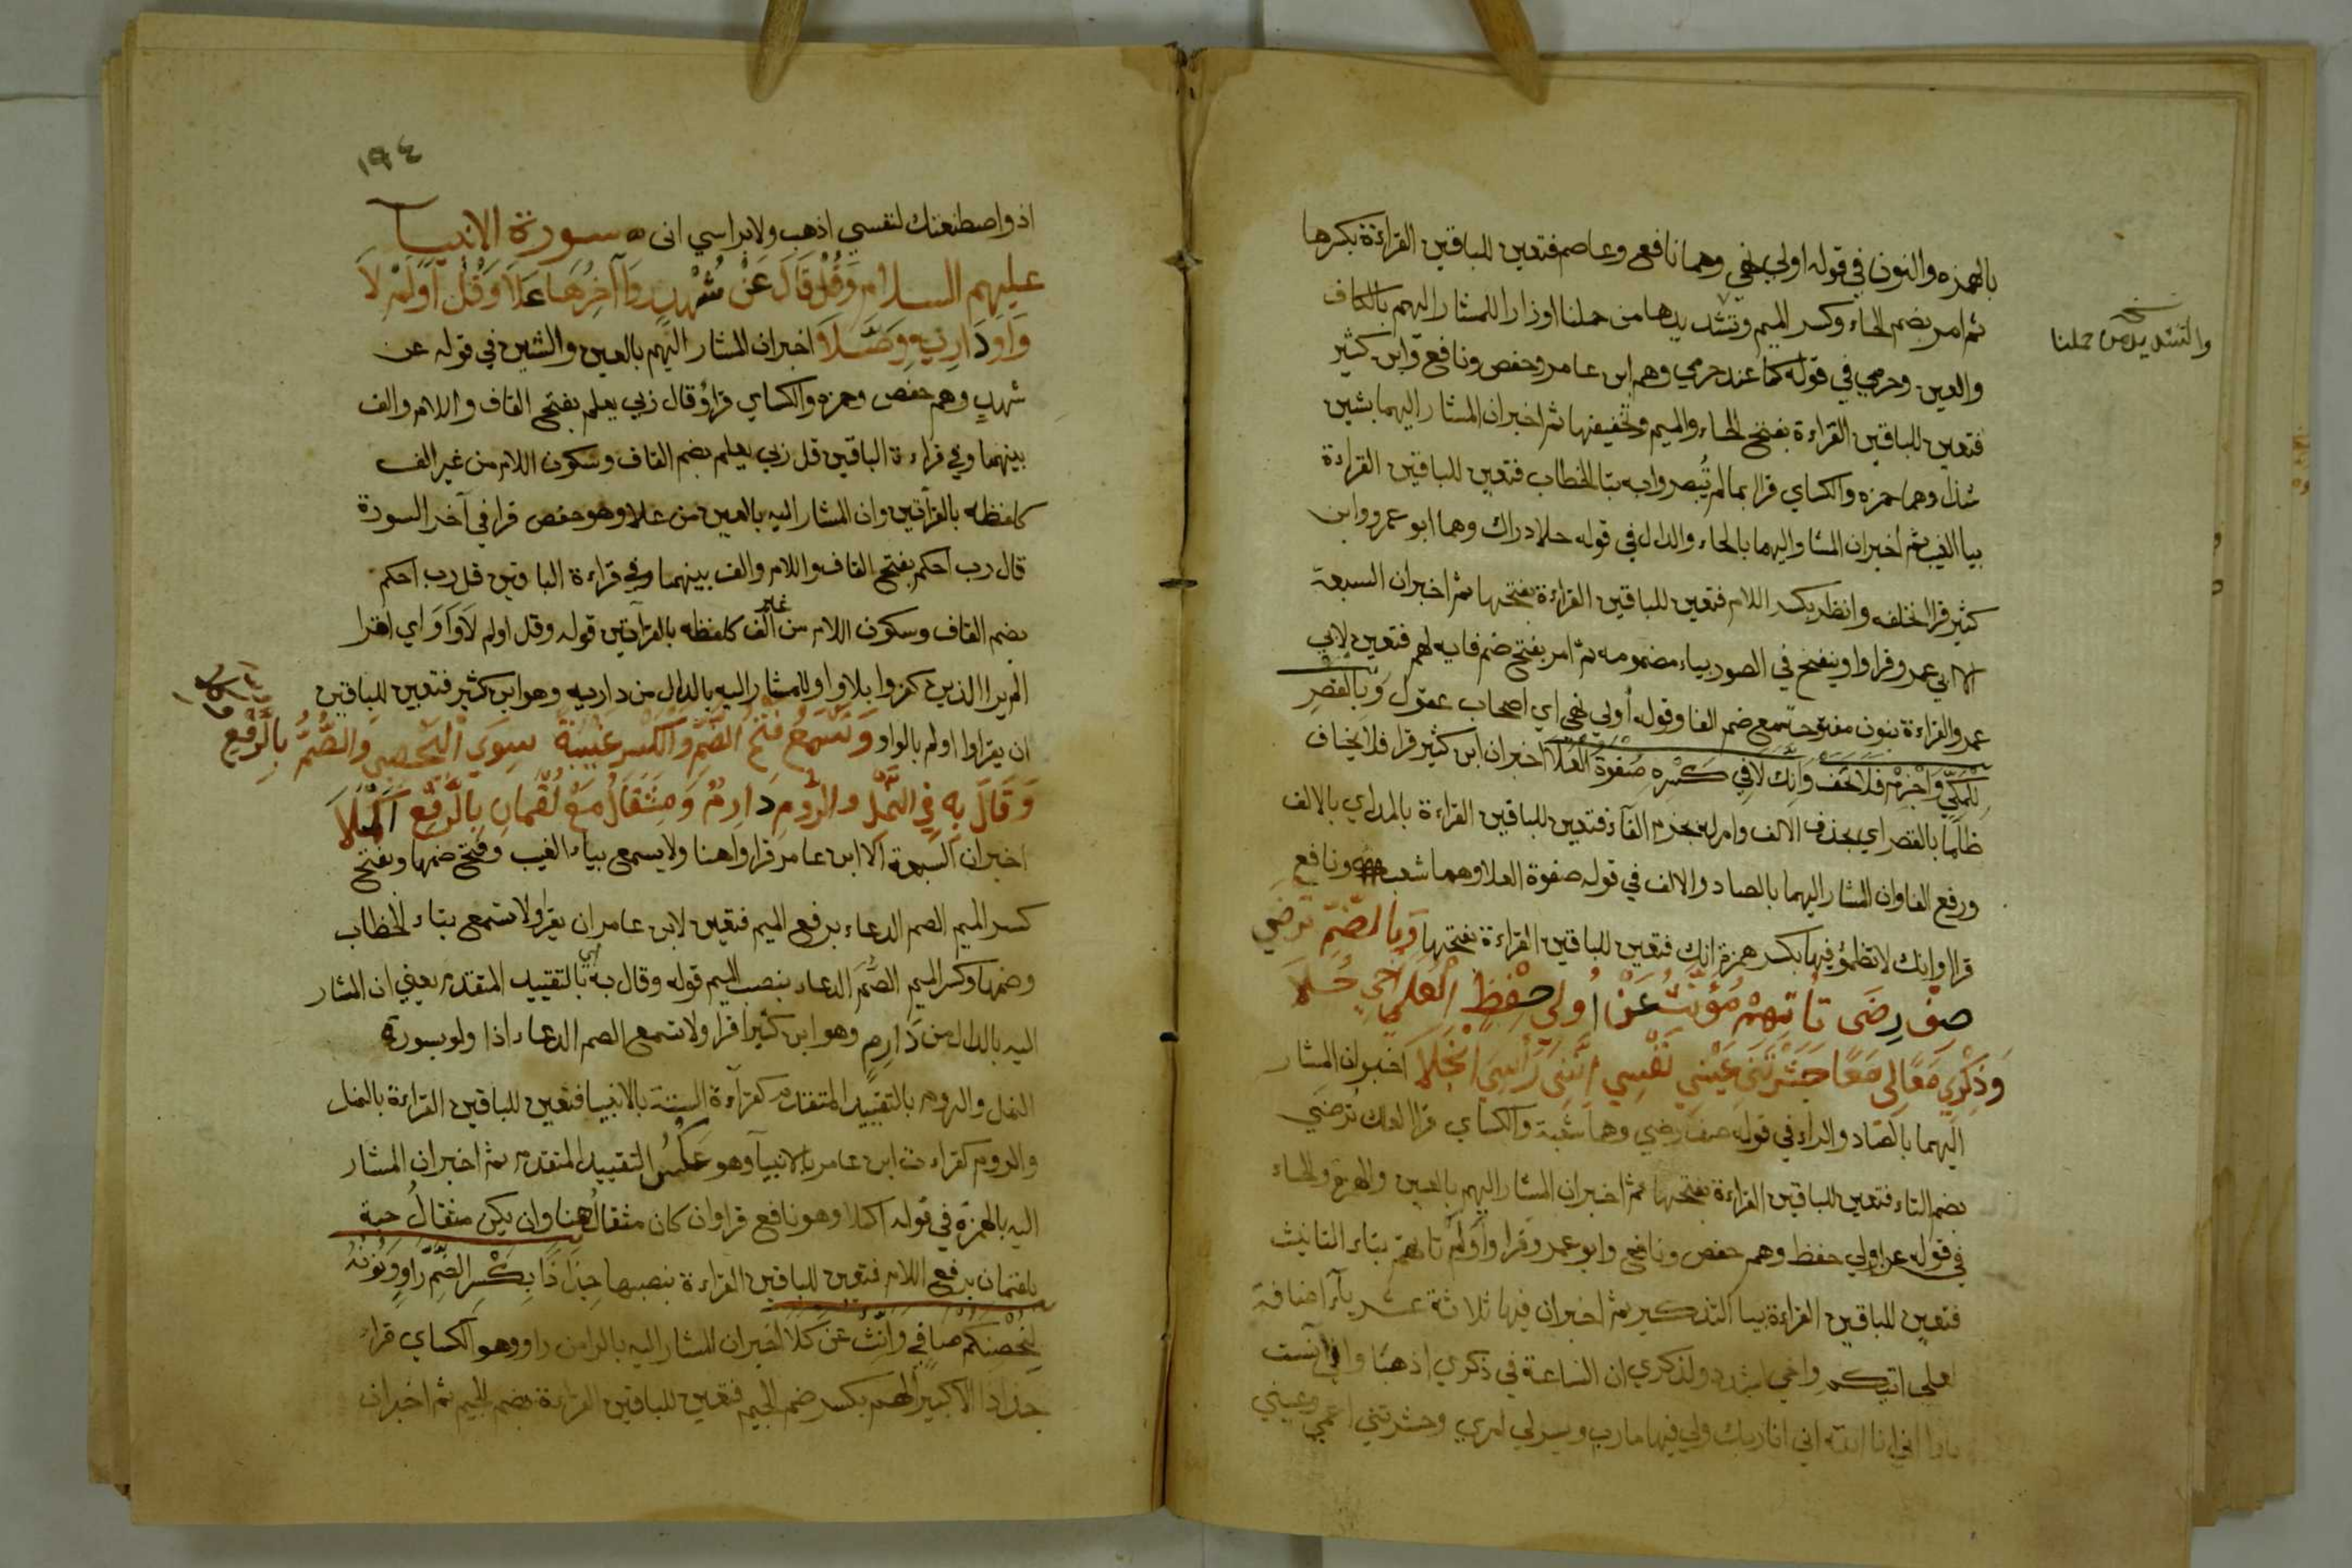 بالهمزه والنون في قوله اولي نهي وهما نافع وعاصم فتعين للباقين القراءة بكسرها
ثم امر بضم الحاء وكسر الميم وتشديدها من حملنا اوزارا للمشار اليهم بالكاف
والعين وحرمي في قوله كما عند حرمي وهم ابن عامر وحفص ونافع وابن كثير
فتعين للباقين القراءة بفتح الحاء والميم وتخفيفها ثم اخبر ان المشار اليهما بشين
شذا وهما حمزه والكساي قرا بما لم تبصروا به بتا الخطاب فتعين للباقين القراءة
بيا الغيب ثم اخبر ان المشار اليهما بالحاء والدال في قوله حلا دراك وهما ابو عمرو وابن
كثير قرا لن تخلفه وانظر بكسر اللام فتعين للباقين القراءة بفتحها ثم اخبر ان السبعة
الا ابي عمرو قراوا وينفخ في الصور بياء مضمومه ثم امر بفتح ضم فايه لهم فتعين لابي
عمرو القراءة بنون مفتوحة مع ضم الفا وقوله أولي نهى اي اصحاب عقول وَبالْقَصْرِ
لِلْمَكِّي وَاجْزِمْ فَلَا يَخَفْ وَاَنَّكَ لَا فِي كَسْرِهِ صَفْوَةُ الْعُلَا اخبر ان ابن كثير قرا فلا يخاف
ظلما بالقصر اي بحذف الالف وامر له بجزم الفاء فتعين للباقين القراءة بالمد اي بالالف
ورفع الفا وان المشار اليهما بالصاد والالف في قوله صفوة العلا وهما شعبه ونافع
قرا وانك لا تظمؤ فيها بكسر همزة انك فتعين للباقين القراءة بفتحها وَبِالضَّمِّ تَرْضَي
صِفْ رِضَى تَاْتِهِمْ مُؤَنَّثٌ عَنْ اُولِي حِفْظٍ لَعَلِّي اَخِي حُلَا
وَذِكْرِي مَعًا اِنِّي مَعًا حَشَرْتَنِي عَيْنِي نَفْسِي اِنَّنِي رَأْسِيَ انْجَلَا اخبر ان المشار
اليهما بالصاد والراء في قوله صف رضي وهما شعبة والكساي قرا لعلك تُرضي
بضم التاء فتعين للباقين القراءة بفتحها ثم اخبر ان المشار اليهم بالعين والهمزة والحاء
في قوله عن اولي حفظ وهم حفص ونافع وابو عمرو قراوا اولم تاتهم بتاء التانيث
فتعين للباقين القراءة بيا التذكير ثم اخبر ان فيها ثلاثة عشر ياء اضافة
لعلي اتيكم واخي اشدد ولذكري ان الساعة في ذكري اذهبا واني آنست
انا ربك ولي فيها مارب ويسر لي امري وحشرتني اعمي وعيني
نسخه
والتشديد من حملنا
١٩٤
اذ واصطنعتك لنفسي اذهب ولا براسي اني سورة الانبيا
عليهم السلام وَقُلْ قَالَ عَنْ شُهْدٍ وَآخِرُهَا عَلَا وَقُلْ اَوَلَمْ لَا
وَاوَ دَارِيهِ وَصَّلَا اخبر ان المشار اليهم بالعين والشين في قوله عن
شهد وهم حفص وحمزه والكساي قراؤ قال ربي يعلم بفتح القاف واللام والف
بينهما وفي قراءة الباقين قل ربي يعلم بضم القاف وسكون اللام من غير الف
كلفظه بالقراتين وان المشار اليه بالعين من علا وهو حفص قرا في آخر السورة
قال رب احكم بفتح القاف واللام والف بينهما وفي قراءة الباقين قل رب احكم
بضم القاف وسكون اللام من غير الف كلفظه بالقراتين قوله وقل اولم لا واو اي اقرا
الم ير الذين كفروا بلا واو للمشار اليه بالدال من داريه وهو ابن كثير فتعين للباقين
ان يقراوا اولم بالواو وَتُسْمِعُ فَتْحُ الضَّمِّ وَالْكَسْرِ غَيْبَةً سِوَى الْيَحْصَبِي وَالصُّمُّ بِالرَّفْعِ
وَقَالَ بِهِ فِي النَّمْلِ وَالرُّومِ دَارِمٌ وَمِثْقَالُ مَعْ لُقْمَانَ بِالرَّفْعِ اُكْمِلَا
اخبر ان السبعة الا ابن عامر قراوا هنا ولا يسمع بياء الغيب وفتح ضمها وبفتح
كسر الميم الصم الدعاء برفع الميم فتعين لابن عامر ان يقرا ولا تسمع بتاء الخطاب
وضمها وكسر الميم الصُّمَ الدعاء بنصب الميم قوله وقال به اي بالتقييد المتقدم يعني ان المشار
اليه بالدال من دَارِمٍ وهو ابن كثير قرا ولا تسمع الصم الدعاء اذا ولو بسورة
النمل والروم بالتقييد المتقدم كقراءة الستة بالانبيا فتعين للباقين القراءة بالنمل
والروم كقراءة ابن عامر بالانبيا وهو عكس التقييد المتقدم ثم اخبر ان المشار
اليه بالهمزة في قوله اكملا وهو نافع قرا وان كان مثقالُ هنا وان يكن مثقالُ حبة
بلقمان برفع اللام فتعين للباقين القراءة بنصبها جِذَاذًا بِكَسْرِ الضَّمِّ رَاوٍ وَنُونُهُ
لِيُحْصِنَكُمْ صَافَي وَاَنِّثْ عَنْ كِلَا اخبر ان المشار اليه بالرا من راو وهو الكساي قراء
جذاذا الا كبيرا لهم بكسر ضم الجيم فتعين للباقين القراءة بضم الجيم ثم اخبر ان